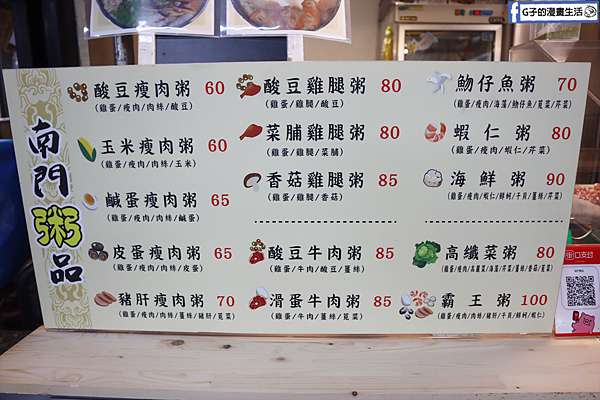 G子的漫畫生活
南門粥品
酸豆瘦肉粥 60
(雞蛋/瘦肉/肉絲/酸豆)
玉米瘦肉粥 60
(雞蛋/瘦肉/肉絲/玉米)
鹹蛋瘦肉粥 65
(雞蛋/瘦肉/肉絲/鹹蛋)
皮蛋瘦肉粥 65
(雞蛋/瘦肉/肉絲/皮蛋)
豬肝瘦肉粥 70
(雞蛋/瘦肉/肉絲/薑絲/豬肝/莧菜)
酸豆雞腿粥 80
(雞蛋/雞腿/酸豆)
菜脯雞腿粥 80
(雞蛋/雞腿/菜脯)
香菇雞腿粥 85
(雞蛋/雞腿/香菇)
酸豆牛肉粥 85
(雞蛋/牛肉/酸豆/薑絲)
滑蛋牛肉粥 85
(雞蛋/牛肉/薑絲/莧菜)
魩仔魚粥 70
(雞蛋/瘦肉/海藻/魩仔魚/莧菜/芹菜)
蝦仁粥 80
(雞蛋/瘦肉/蝦仁/芹菜)
海鮮粥 90
(雞蛋/瘦肉/蝦仁/鮮蚵/干貝/薑絲/芹菜)
高纖菜粥 80
(雞蛋/瘦肉/高麗菜/海藻/芹菜/薑絲/香菇/莧菜)
霸王粥 100
(雞蛋/瘦肉/肉絲/薑絲/豬肝/干貝/鮮蚵/蝦仁)
街口支付